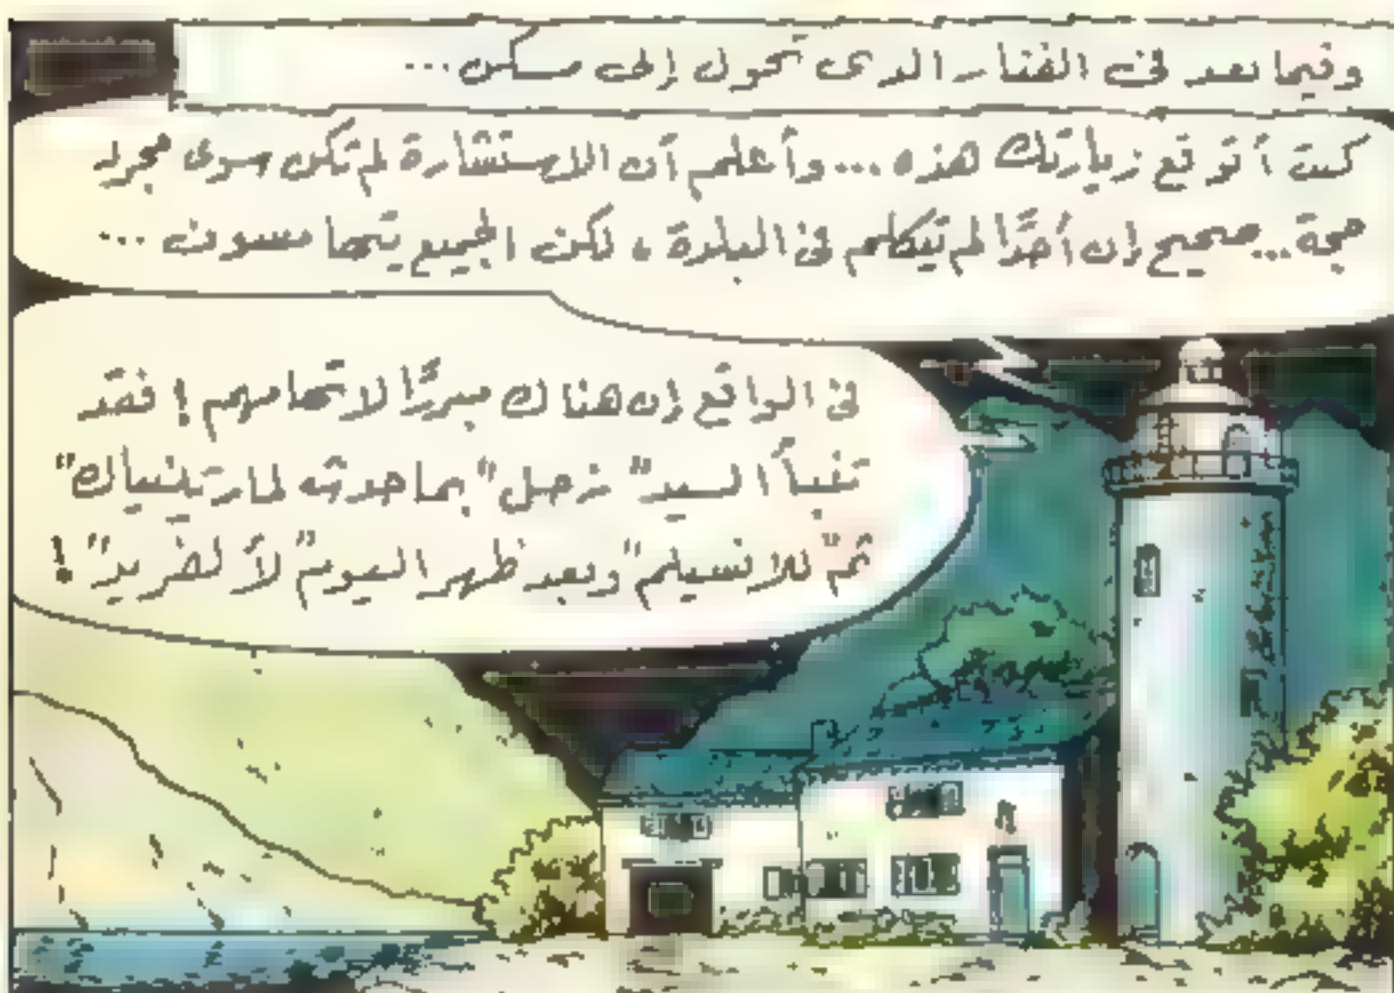 وفيما بعد فى الفنار الذى تحول إلى مسكن...
كنت أتوقع زيارتك هذه... وأعلم أن الاستشارة لم تكن سوى مجرد
حجة... صحيح إن أحدًا لم يتكلم فى البلدة، لكن الجميع يتهامسون...
فى الواقع إن هناك مبررًا لاتهامهم! فقد
تنبأ السيد "زحل" بما حدث لمارتينياك"
ثم "للانسيلم" وبعد ظهر اليوم "لألفريد"!